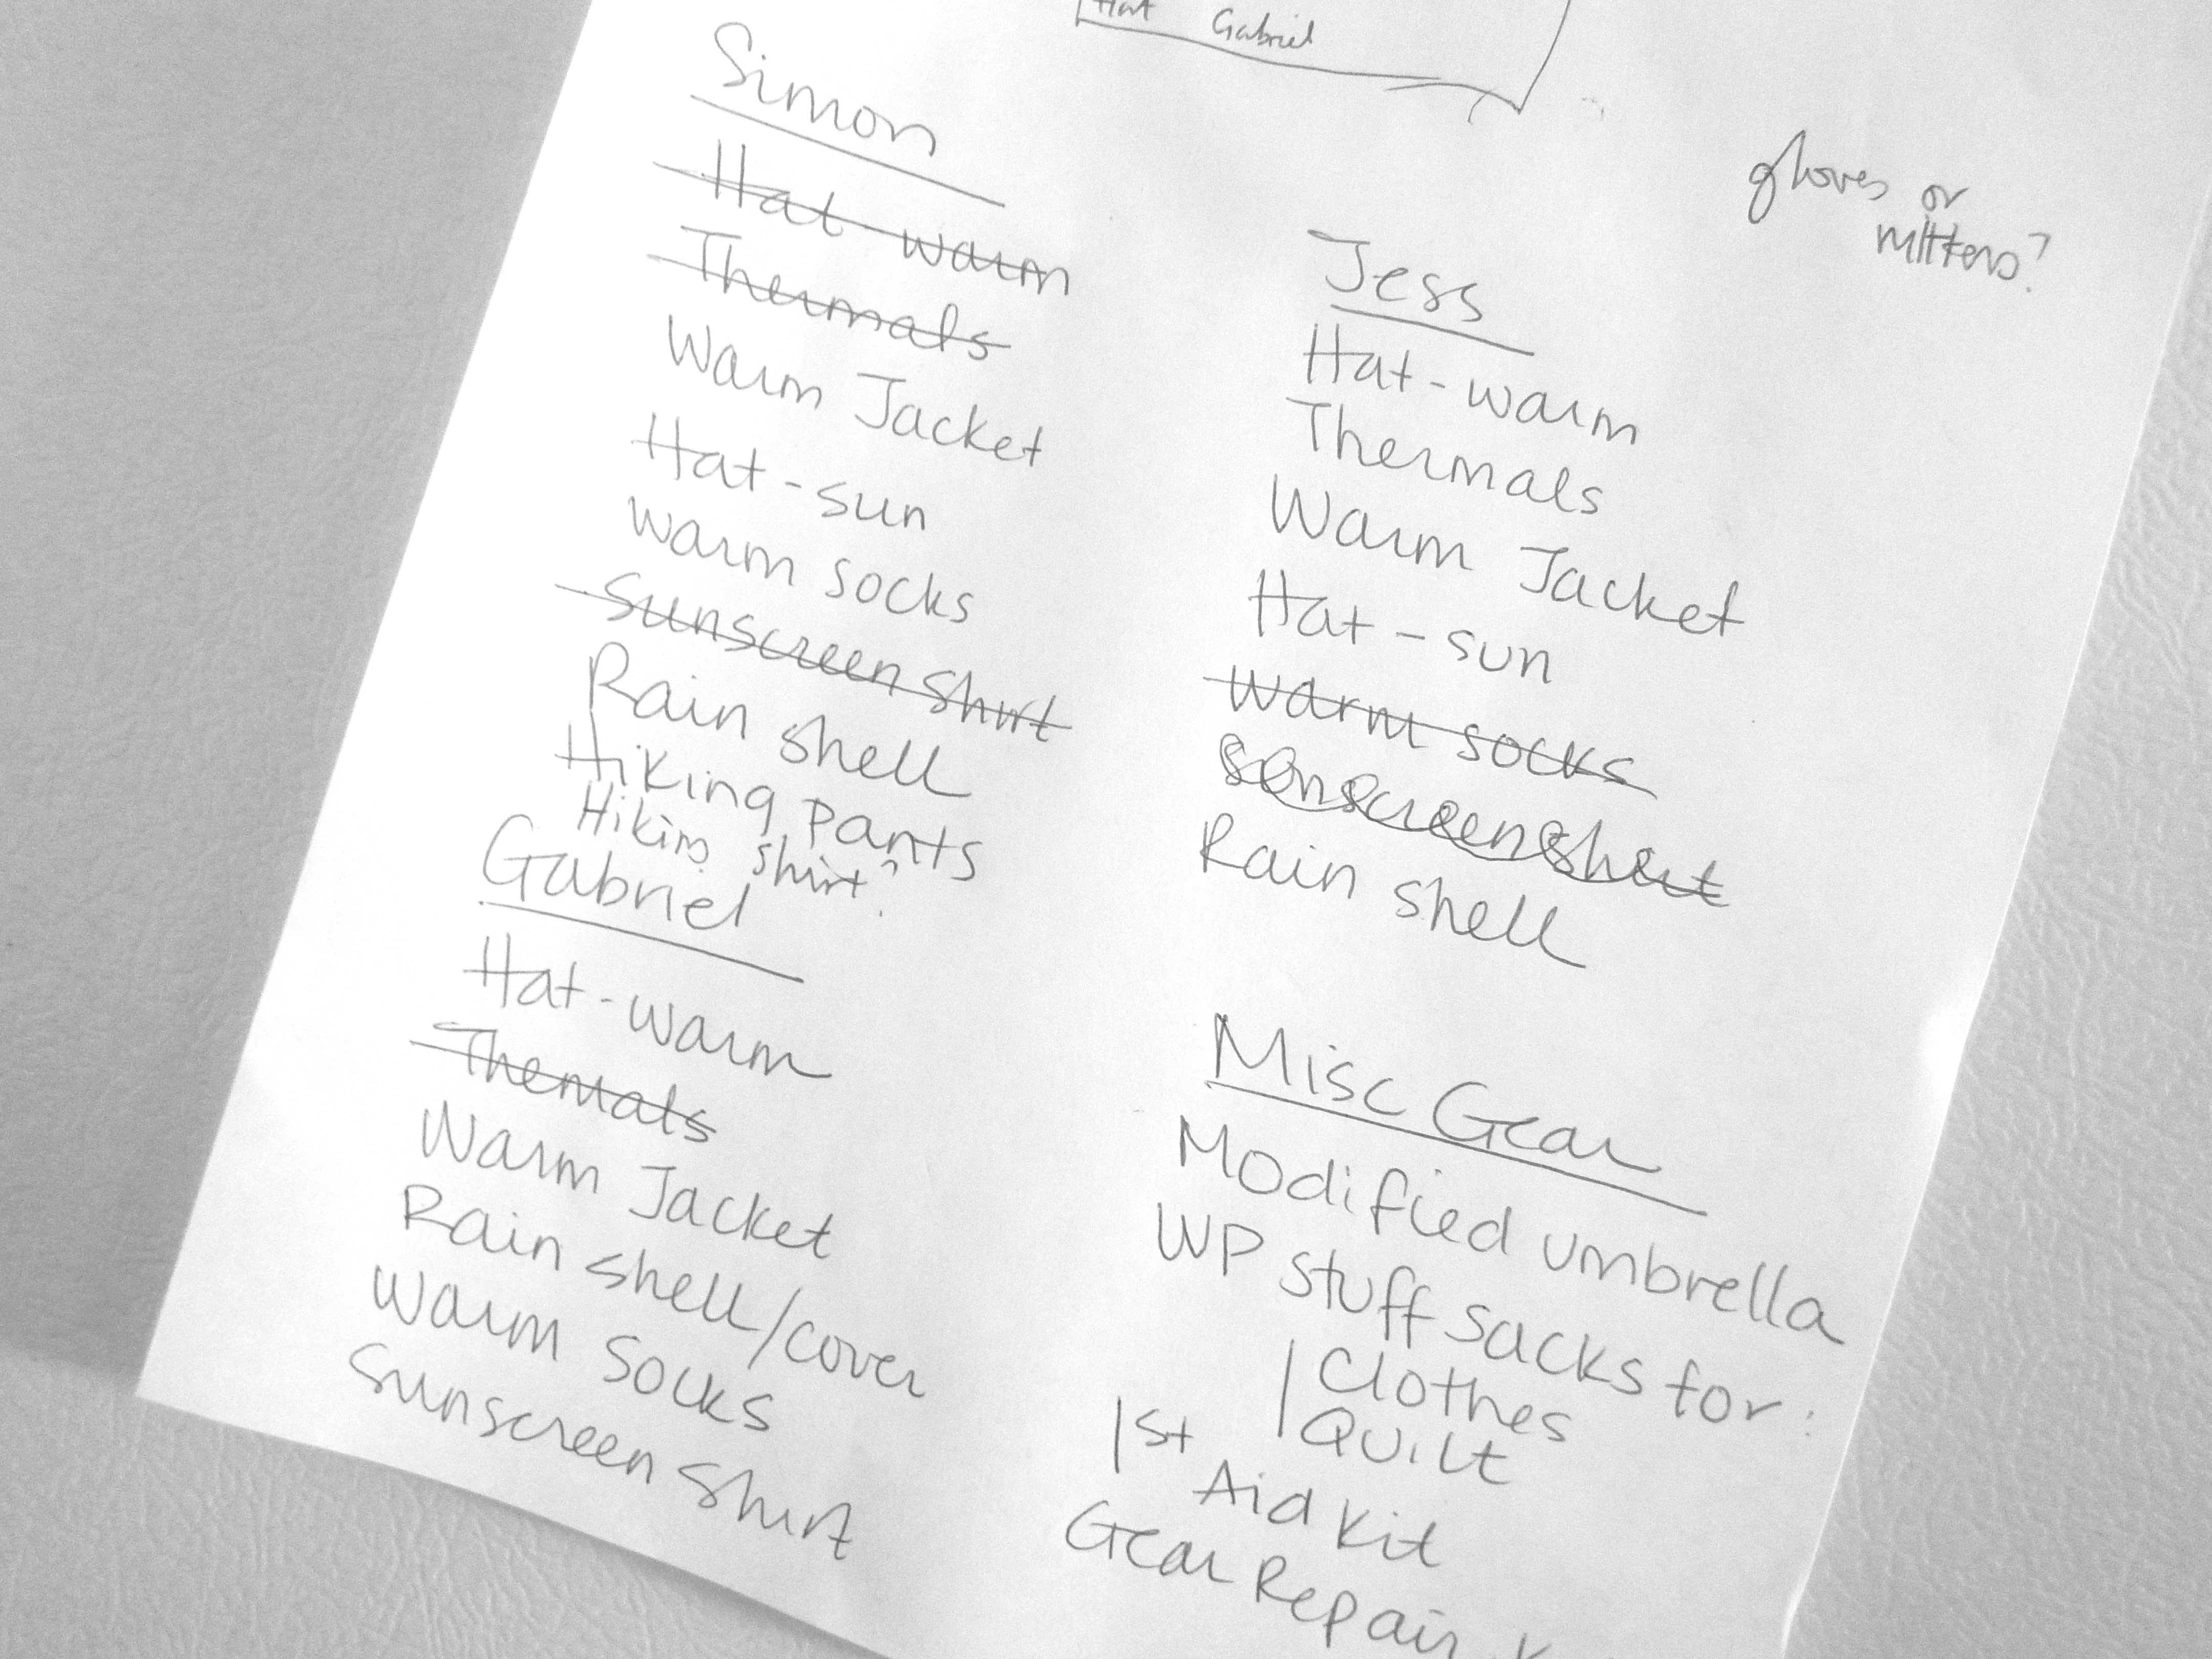 Hat Gabriel
gloves or
mittens?
Simon
Hat-warm
Thermals
Warm Jacket
Hat-sun
warm socks
Sunscreen Shirt
Rain shell
Hiking pants
Hiking shirt?
Gabriel
Hat-warm
Themals
Warm Jacket
Rain shell/cover
Warm Socks
Sunscreen Shirt
Jess
Hat-warm
Thermals
Warm Jacket
Hat-sun
warm socks
Sunscreen Shirt
Rain shell
Misc Gear
Modified umbrella
WP stuff sacks for:
Clothes
Quilt
1st Aid Kit
Gear Repair